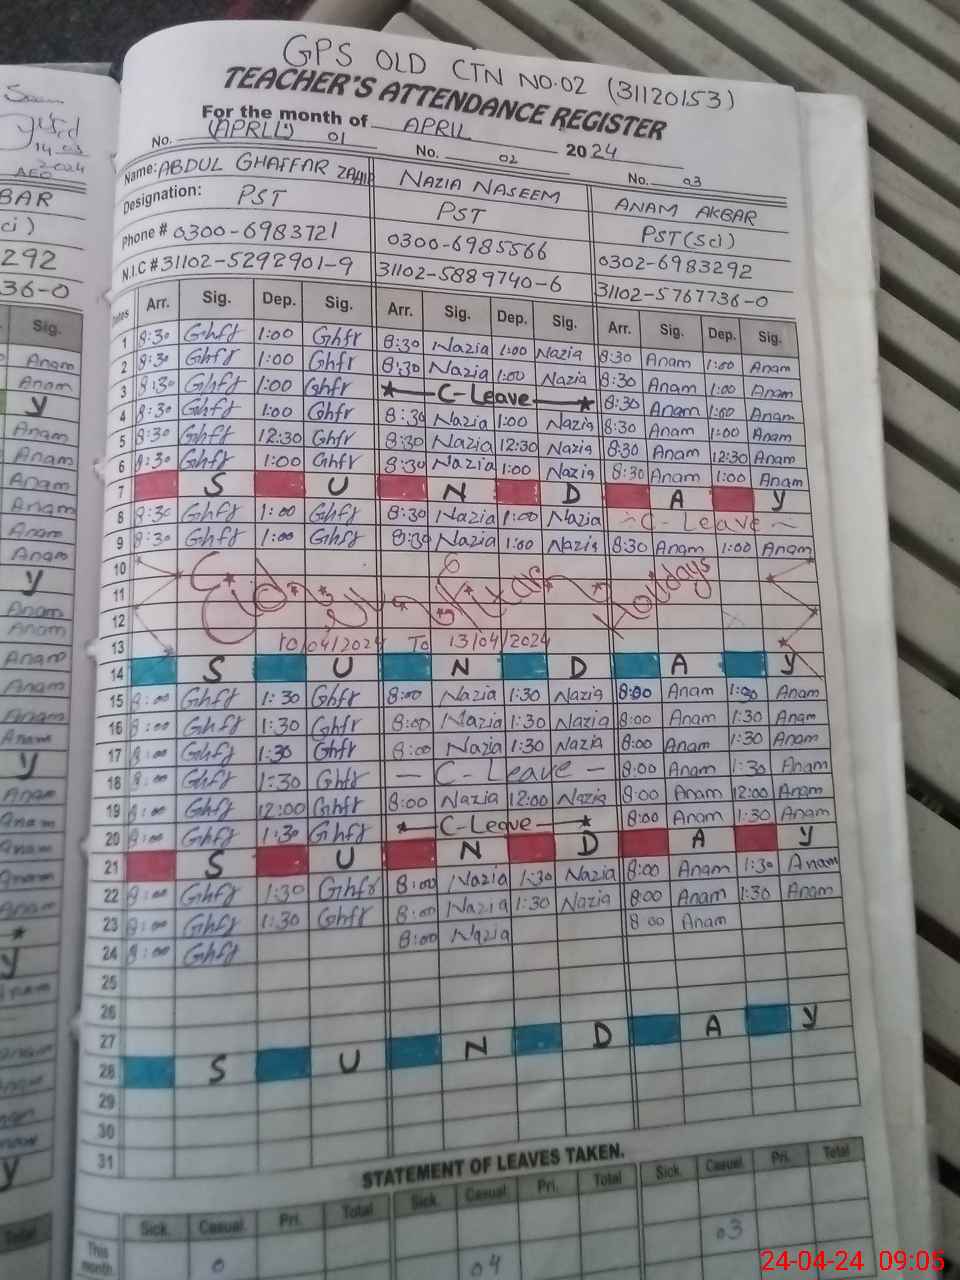 GPS OLD CTN NO.02 (31120153)
TEACHER'S ATTENDANCE REGISTER
For the month of APRIL 2024
(APRIL)
No. 01 No. 02 No. 03
Name: ABDUL GHAFFAR ZAHID NAZIA NASEEM ANAM AKBAR
Designation: PST PST PST(Sci)
Phone # 0300-6983721 0300-6985566 0302-6983292
N.I.C # 31102-5292901-9 31102-5889740-6 31102-5767736-0
Dates Arr. Sig. Dep. Sig. Arr. Sig. Dep. Sig. Arr. Sig. Dep. Sig.
1 8:30 Ghfr 1:00 Ghfr 8:30 Nazia 1:00 Nazia 8:30 Anam 1:00 Anam
2 8:30 Ghfr 1:00 Ghfr 8:30 Nazia 1:00 Nazia 8:30 Anam 1:00 Anam
3 8:30 Ghfr 1:00 Ghfr C-Leave 8:30 Anam 1:00 Anam
4 8:30 Ghfr 1:00 Ghfr 8:30 Nazia 1:00 Nazia 8:30 Anam 1:00 Anam
5 8:30 Ghfr 12:30 Ghfr 8:30 Nazia 12:30 Nazia 8:30 Anam 12:30 Anam
6 8:30 Ghfr 1:00 Ghfr 8:30 Nazia 1:00 Nazia 8:30 Anam 1:00 Anam
7 S U N D A Y
8 8:30 Ghfr 1:00 Ghfr 8:30 Nazia 1:00 Nazia C-Leave
9 8:30 Ghfr 1:00 Ghfr 8:30 Nazia 1:00 Nazia 8:30 Anam 1:00 Anam
10
11 Eid-ul-Fitar Holidays
12
13 10/04/2024 To 13/04/2024
14 S U N D A Y
15 8:00 Ghfr 1:30 Ghfr 8:00 Nazia 1:30 Nazia 8:00 Anam 1:30 Anam
16 8:00 Ghfr 1:30 Ghfr 8:00 Nazia 1:30 Nazia 8:00 Anam 1:30 Anam
17 8:00 Ghfr 1:30 Ghfr 8:00 Nazia 1:30 Nazia 8:00 Anam 1:30 Anam
18 8:00 Ghfr 1:30 Ghfr C-Leave 8:00 Anam 1:30 Anam
19 8:00 Ghfr 12:00 Ghfr 8:00 Nazia 12:00 Nazia 8:00 Anam 12:00 Anam
20 8:00 Ghfr 1:30 Ghfr C-Leave 8:00 Anam 1:30 Anam
21 S U N D A Y
22 8:00 Ghfr 1:30 Ghfr 8:00 Nazia 1:30 Nazia 8:00 Anam 1:30 Anam
23 8:00 Ghfr 1:30 Ghfr 8:00 Nazia 1:30 Nazia 8:00 Anam 1:30 Anam
24 8:00 Ghfr 8:00 Nazia 8 00 Anam
25
26
27
28 S U N D A Y
29
30
31
STATEMENT OF LEAVES TAKEN.
Sick. Casual. Pri. Total Sick. Casual. Pri. Total Sick. Casual. Pri. Total
This month 0 04 03
24-04-24 09:05